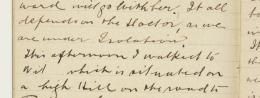 ward will go with her. It all
depends on the Doctor, as we
are under Isolation.
This afternoon I walked to
which is situated on
a high Hill on the road to